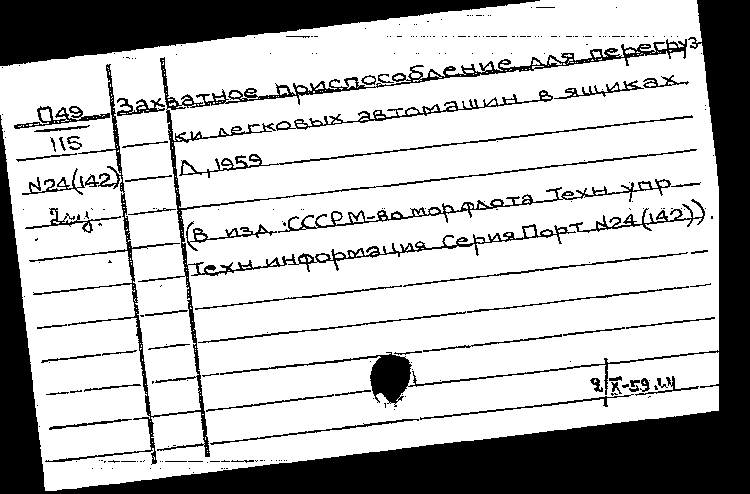 П49
115
N24(142)
2 экз.
Захватное приспособление для перегруз-
ки легковых автомашин в ящиках
Л, 1959
(В изд. СССР М-во мор флота Техн упр
Техн информация Серия Порт N24(142)).
2 X-59